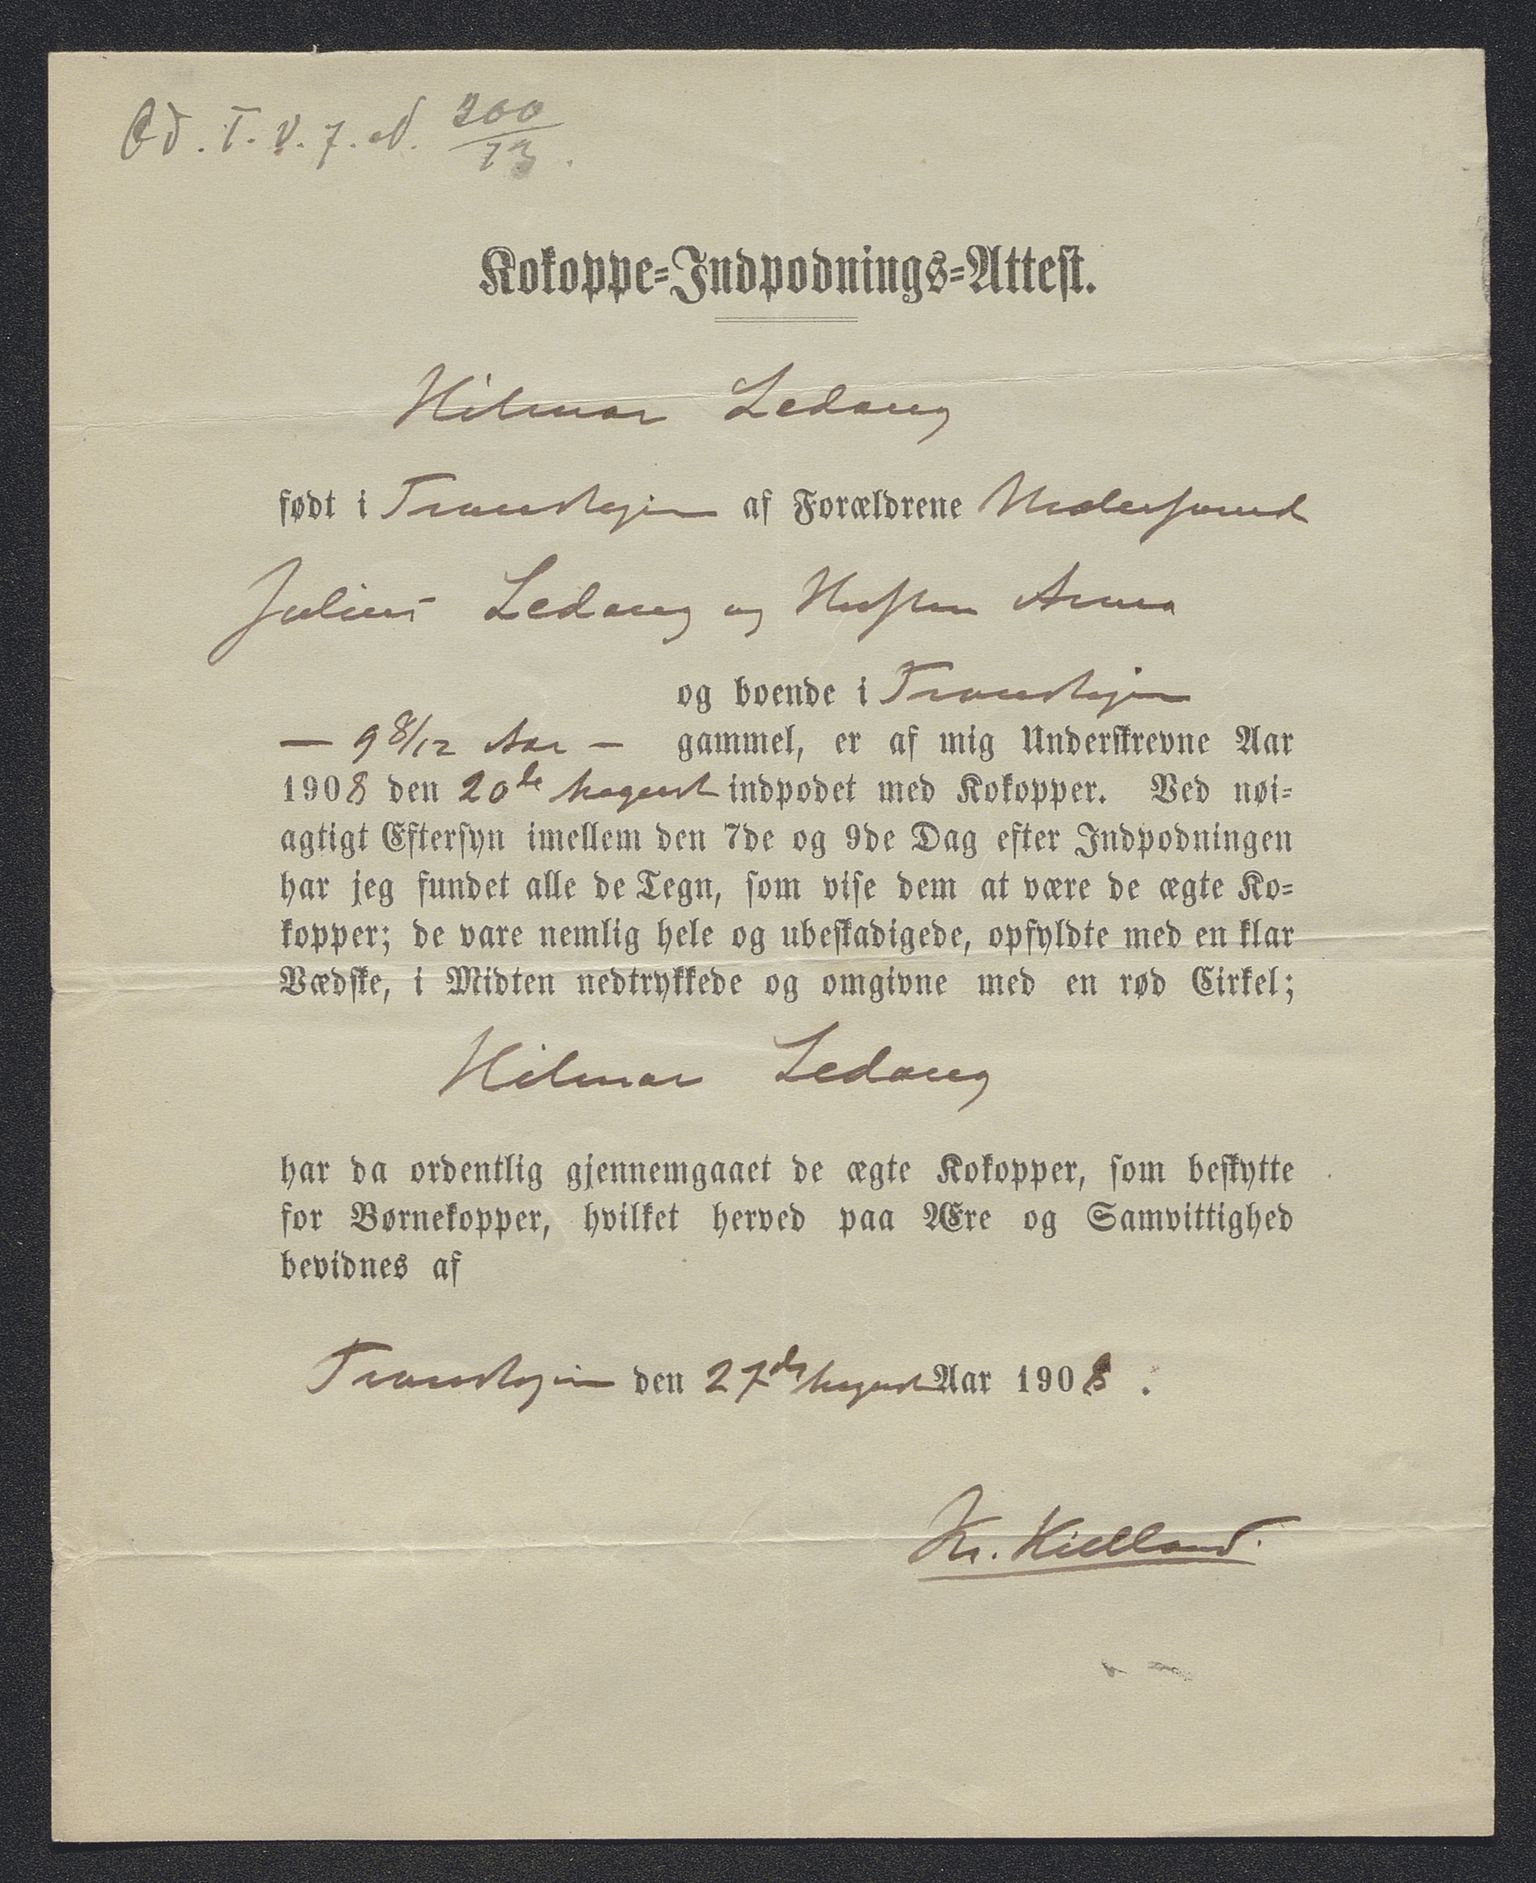 Od. T. V. 7. N. 200/13.
Kokoppe-Indpodnings-Attest.
Hilmar Ledang
født i Trondhjem af Forældrene
Julius Ledang og Hustru Anna
og boende i Trondhjem
— 9 8/12 Aar — gammel, er af mig Underskrevne Aar
1908 den 20de August indpodet med Kokopper. Ved nøi-
agtigt Eftersyn imellem den 7de og 9de Dag efter Indpodningen
har jeg fundet alle de Tegn, som vise dem at være de ægte Ko-
kopper; de vare nemlig hele og ubeskadigede, opfyldte med en klar
Vædske, i Midten nedtrykkede og omgivne med en rød Cirkel;
Hilmar Ledang
har da ordentlig gjennemgaaet de ægte Kokopper, som beskytte
for Børnekopper, hvilket herved paa Ære og Samvittighed
bevidnes af
Trondhjem den 27de August Aar 1908.
Kr. Kielland.